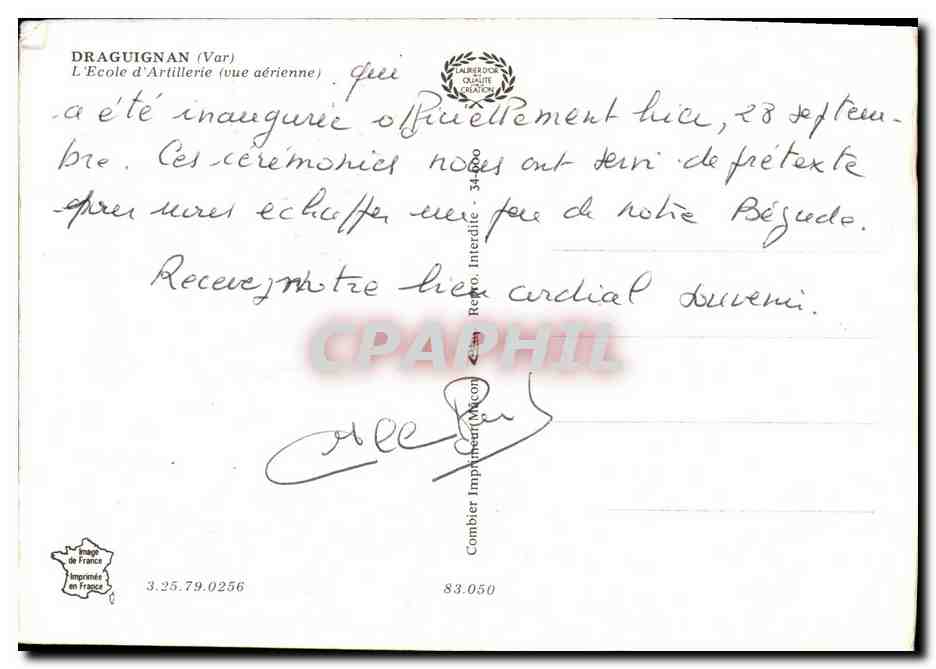 DRAGUIGNAN (Var)
L'Ecole d'Artillerie (vue aérienne) qui
LAURIER D'OR
DE LA
QUALITÉ
CRÉATION
a été inaugurée officiellement hier, 28 septem-
bre. Ces cérémonies nous ont servi de prétexte
pour nous échapper un peu de notre Bégude.
Recevez notre bien cordial souvenir.
CPAPHIL
Combier Imprimeur Mâcon Repro. Interdite - 34-600
Image
de France
Imprimée
en France
3.25.79.0256
83.050